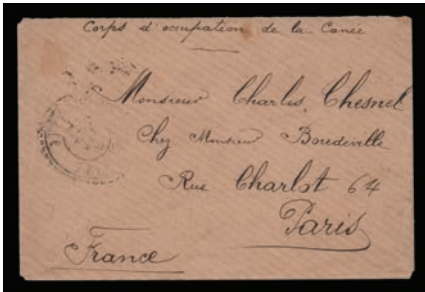 Corps d'occupation de la Canée
Monsieur Charles Chesnel
Chez Monsieur Boudeville
Rue Charlot 64
Paris
France